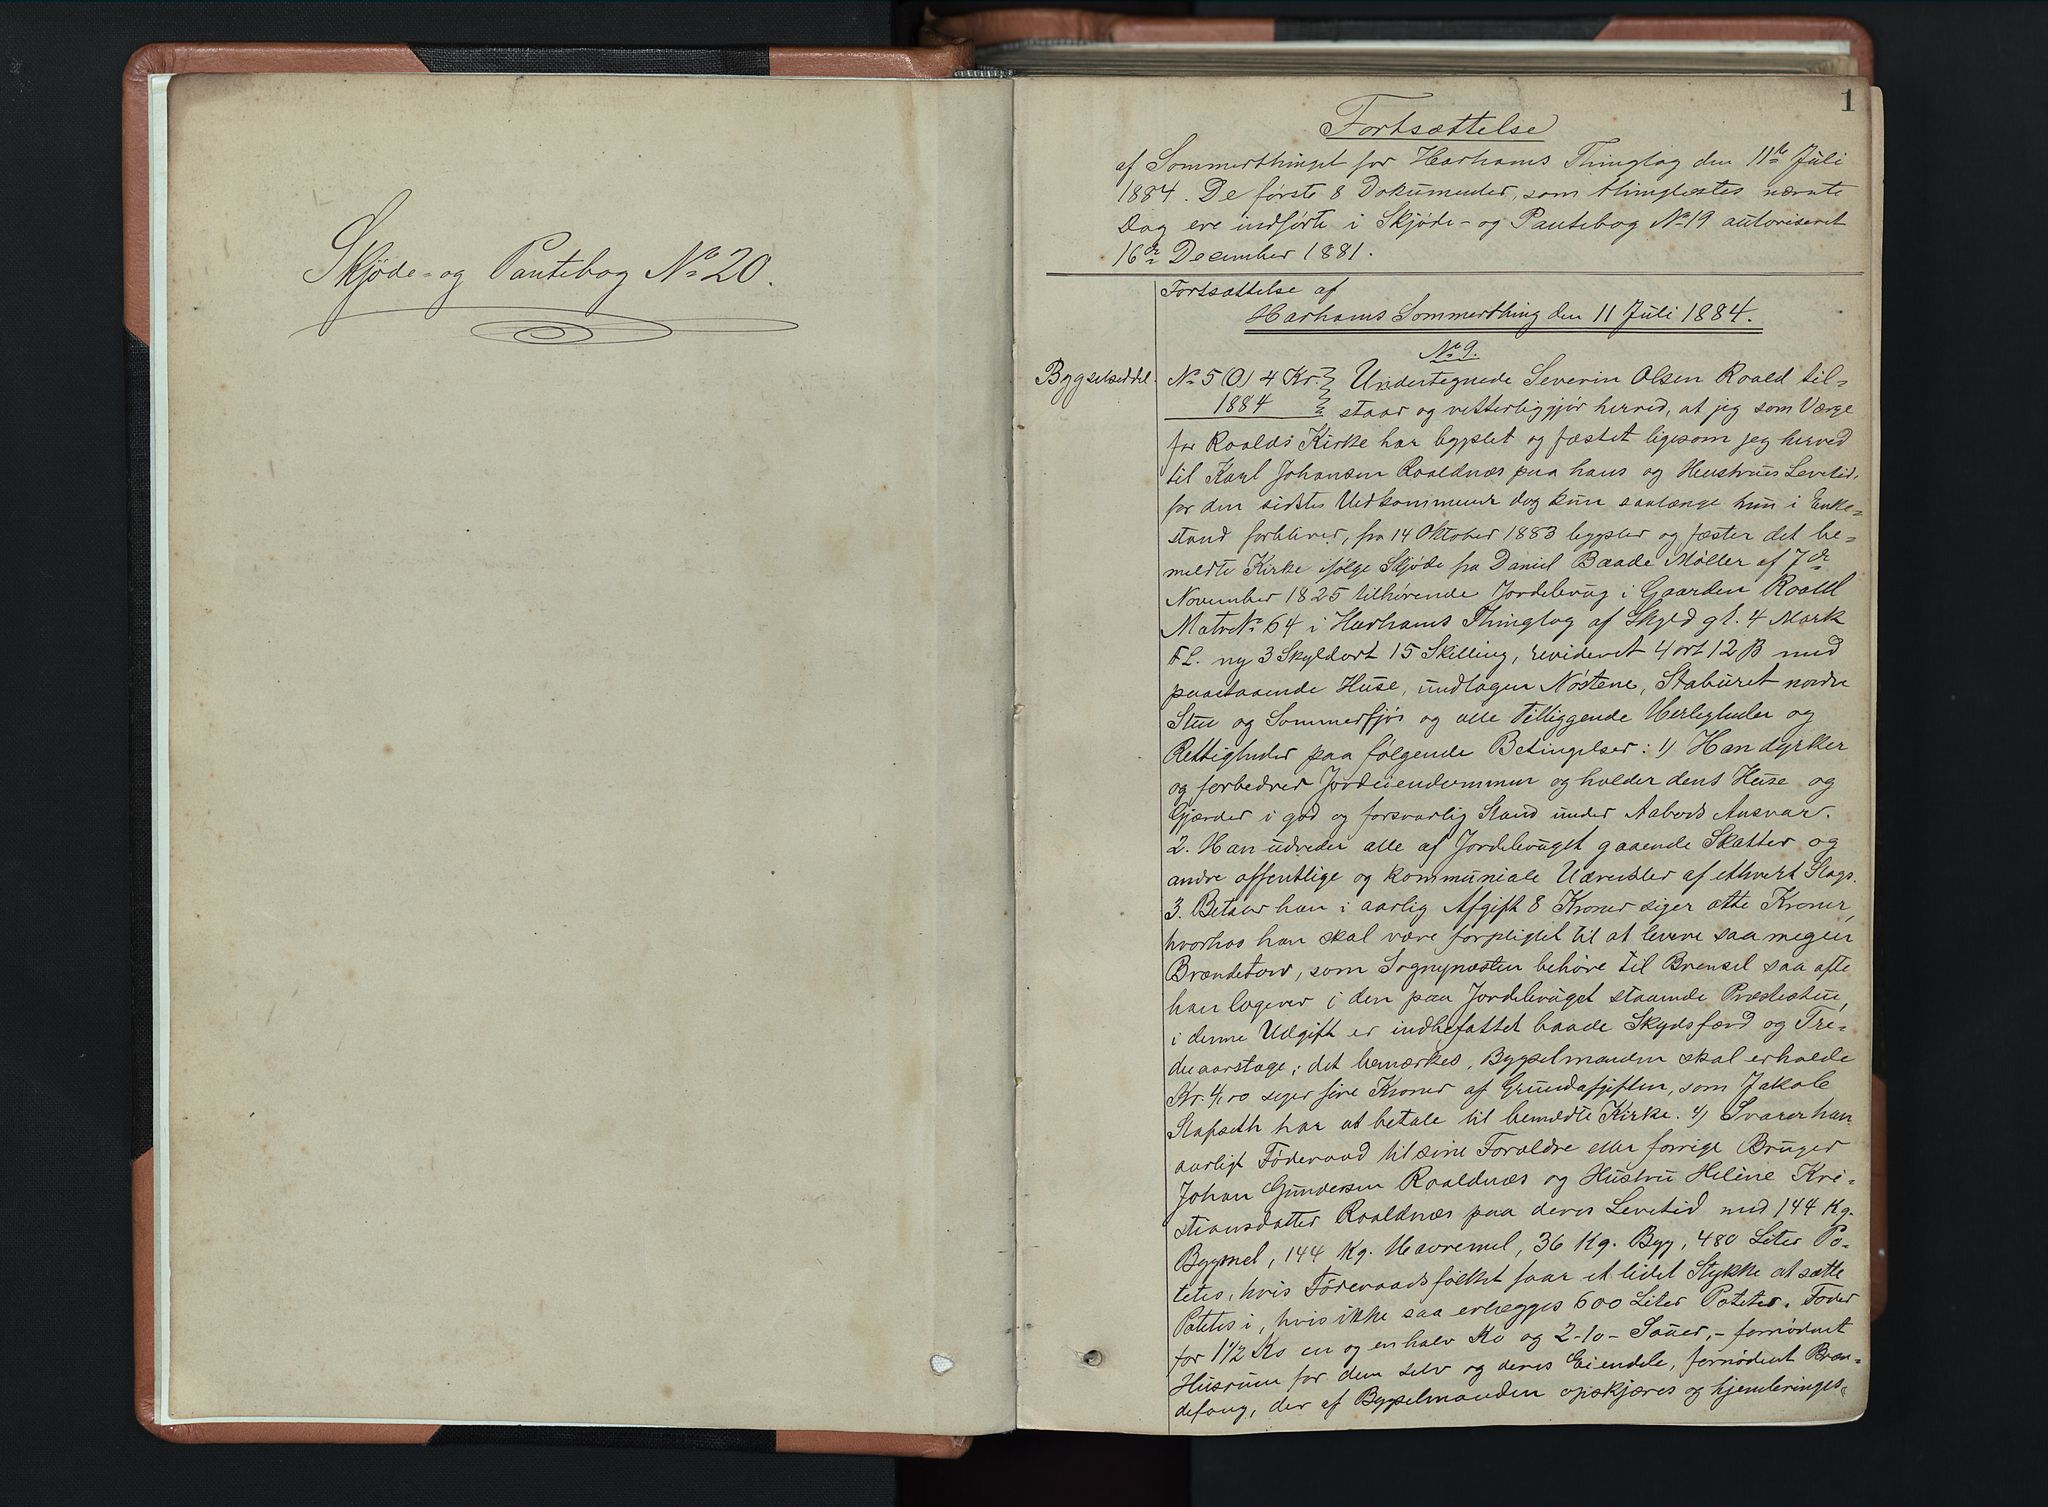 Skjøde- og Pantebog No 20.
1
Fortsættelse
af Sommerthinget for Harhams Thinglag den 11te Juli
1884. De første 8 Dokumenter, som thinglæstes nævnte
Dag ere indførte i Skjøde- og Pantebog No 19 autoriseret
16de December 1881.
Fortsættelse af
Harhams Sommerthing den 11 Juli 1884.
No 9.
Bygselseddel.
No 5 (O) 4 Kr. Undertegnede Severin Olsen Roald til-
1884 staar og vitterliggjør herved, at jeg som Værge
for Roalds Kirke har bygslet og fæstet ligesom jeg herved
til Karl Johansen Roaldnæs paa hans og Hustrues Levetid,
for den sidstes Vedkommende dog kun saalænge hun i Enke-
stand forbliver, fra 14 Oktober 1883 bygsler og fæster det be-
meldte Kirke ifølge Skjøde fra Daniel Baade Møller af 7de
November 1825 tilhørende Jordebrug i Gaarden Roald
Matr No 64 i Harhams Thinglag af Skyld gl. 4 Mark
F L. ny 3 Skyldort 15 Skilling, revideret 4 ort 12 β med
paastaaende Huse, undtagen Nøstene, Staburet nordre
Stue og Sommerfjøs og alle Tilliggende Herligheder og
Rettigheder paa følgende Betingelser: 1) Han dyrker
og forbedrer Jordeiendommen og holder dens Huse og
Gjærder i god og forsvarlig Stand under Aabods Ansvar.
2. Han udreder alle af Jordebruget gaaende Skatter og
andre offentlige og kommuniale Udredsler af ethvert Slags.
3. Betaler han i aarlig Afgift 8 Kroner siger otte Kroner,
hvorhos han skal være forpligtet til at levere saa megen
Brændetorv, som Sognepræsten behøve til Brensel saa ofte
han logerer i den paa Jordebruget staaende Præstestue,
i denne Udgift er indbefattet baade Skydsfærd og Tre-
dieaarstage; det bemærkes, Bygselmanden skal erholde
Kr. 4,00 siger fire Kroner af Grundafgiften, som Jakob
Stafseth har at betale til bemeldte Kirke. 4) Svarer han
aarligt Føderaad til sine Forældre eller forrige Bruger
Johan Gundersen Roaldnæs og Hustru Heline Kri-
stiansdatter Roaldnæs paa deres Levetid med 144 Kg.
Bygmel, 144 Kg. Havremel, 36 Kg. Byg, 480 Liter Po-
tetes, hvis Føderaadsfolket faar et lidet Stykke at sætte
Potetes i, hvis ikke saa erlægges 600 Liter Potetes. Foder
for 1 1/2 Ko en og en halv Ko og 2-to- Sauer, - fornødent
Husrum for dem selv og deres Eiendele, fornødent Bræn-
defang, der af Bygselmanden opskjæres og hjembringes,